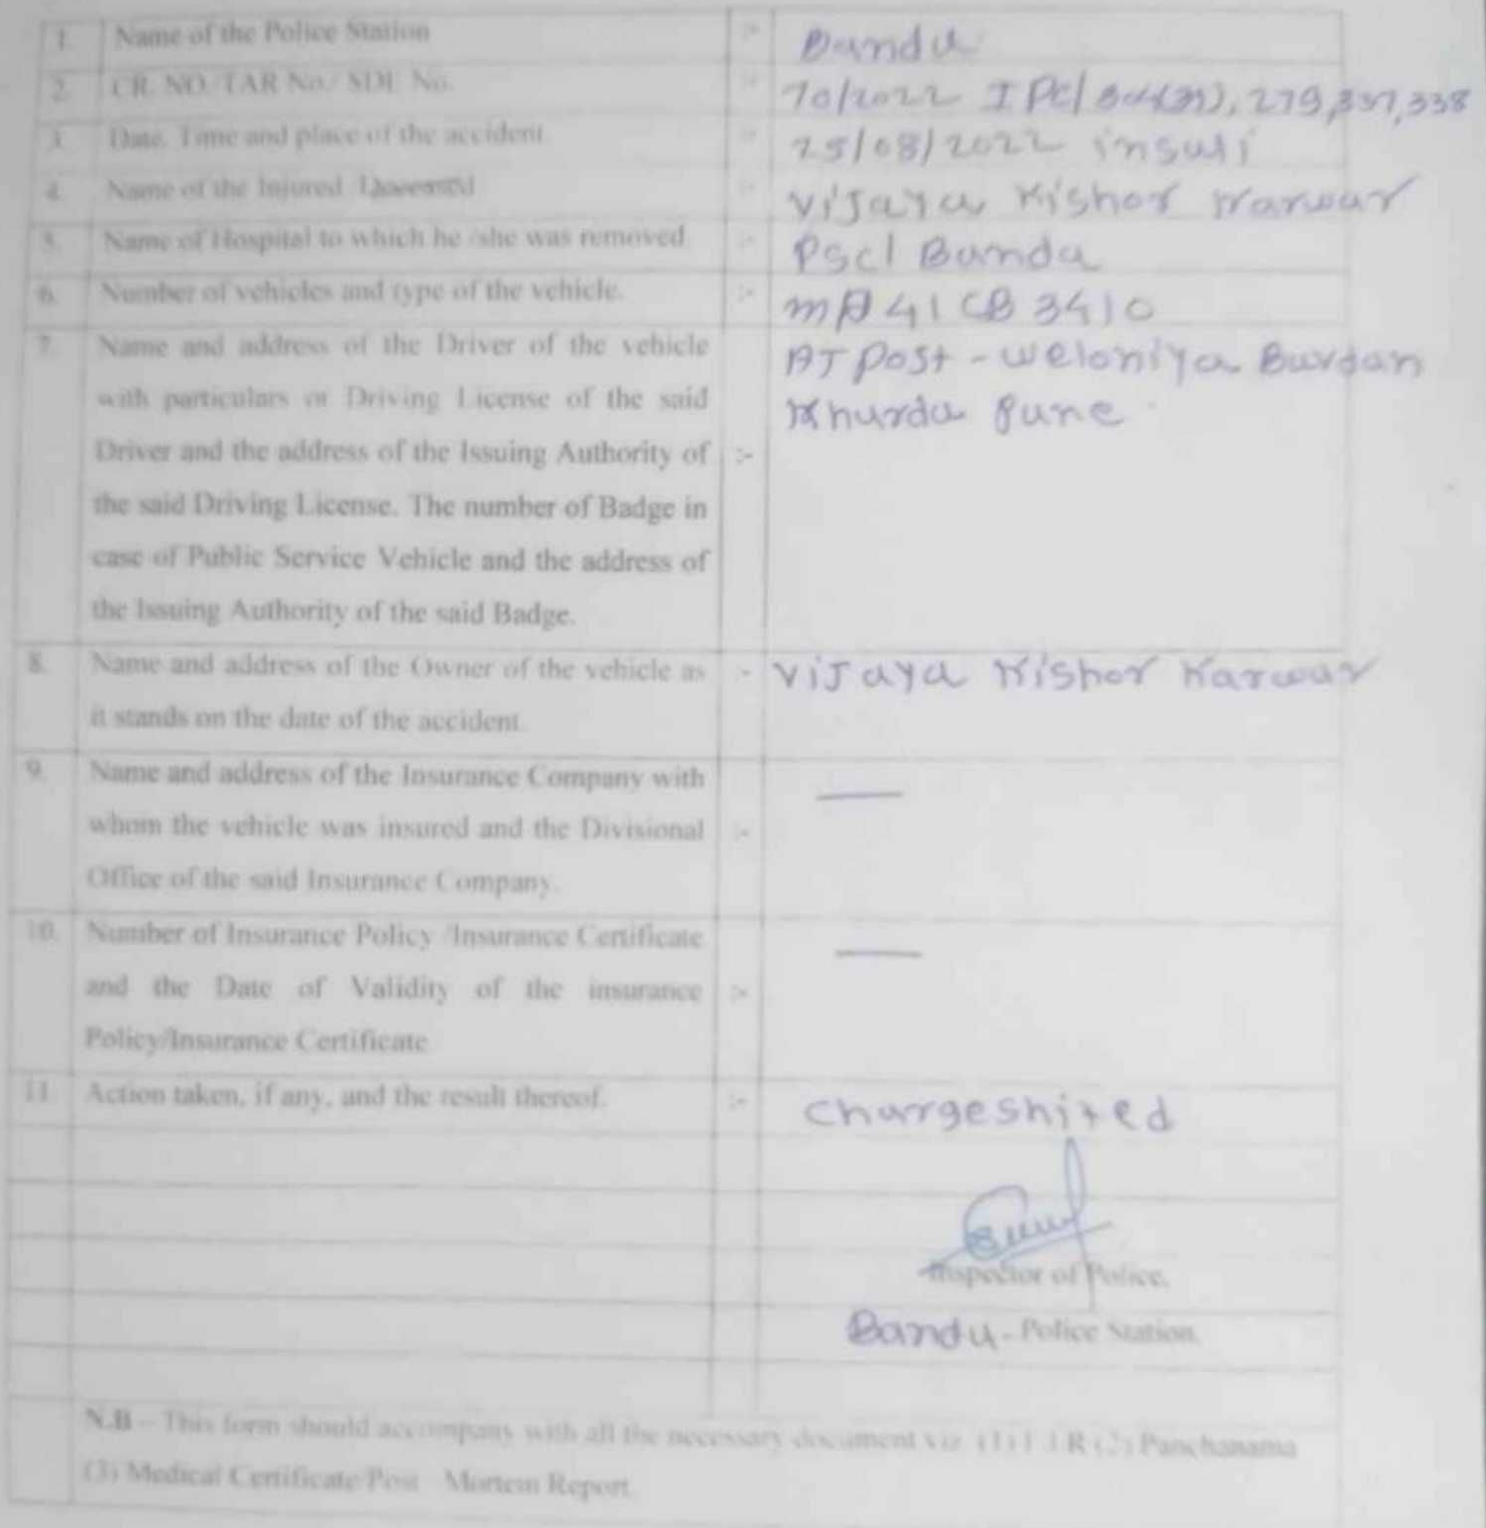 1. Name of the Police Station :- Banda
2. CR. NO./TAR No./ SDE No. :- 70/2022 IPC/ 279,337,338
3. Date, Time and place of the accident. :- 25/08/2022 insuli
4. Name of the Injured /Deceased :- Vijaya Kishor Karwar
5. Name of Hospital to which he /she was removed. :- Banda
6. Number of vehicles and type of the vehicle. :- MH 41 CB 3410
7. Name and address of the Driver of the vehicle AT Post - Weloniya Burdan
with particulars or Driving License of the said Khurda Pune
Driver and the address of the Issuing Authority of :-
the said Driving License. The number of Badge in
case of Public Service Vehicle and the address of
the Issuing Authority of the said Badge.
8. Name and address of the Owner of the vehicle as :- Vijaya Kishor Karwar
it stands on the date of the accident.
9. Name and address of the Insurance Company with —
whom the vehicle was insured and the Divisional :-
Office of the said Insurance Company.
10. Number of Insurance Policy /Insurance Certificate —
and the Date of Validity of the insurance :-
Policy/Insurance Certificate
11. Action taken, if any, and the result thereof. :- Chargeshited
Inspector of Police,
Banda - Police Station.
N.B – This form should accompany with all the necessary document viz. (1) F.I.R (2) Panchanama
(3) Medical Certificate/Post - Mortem Report.